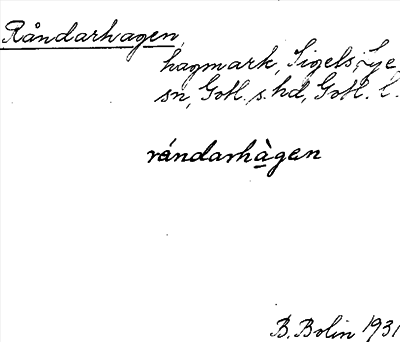 Råndarhagen
hagmark, Sigels, Lye
sn, Gotl. s. hd, Gotl. l.
rándarhàgen
B. Bolin 1931